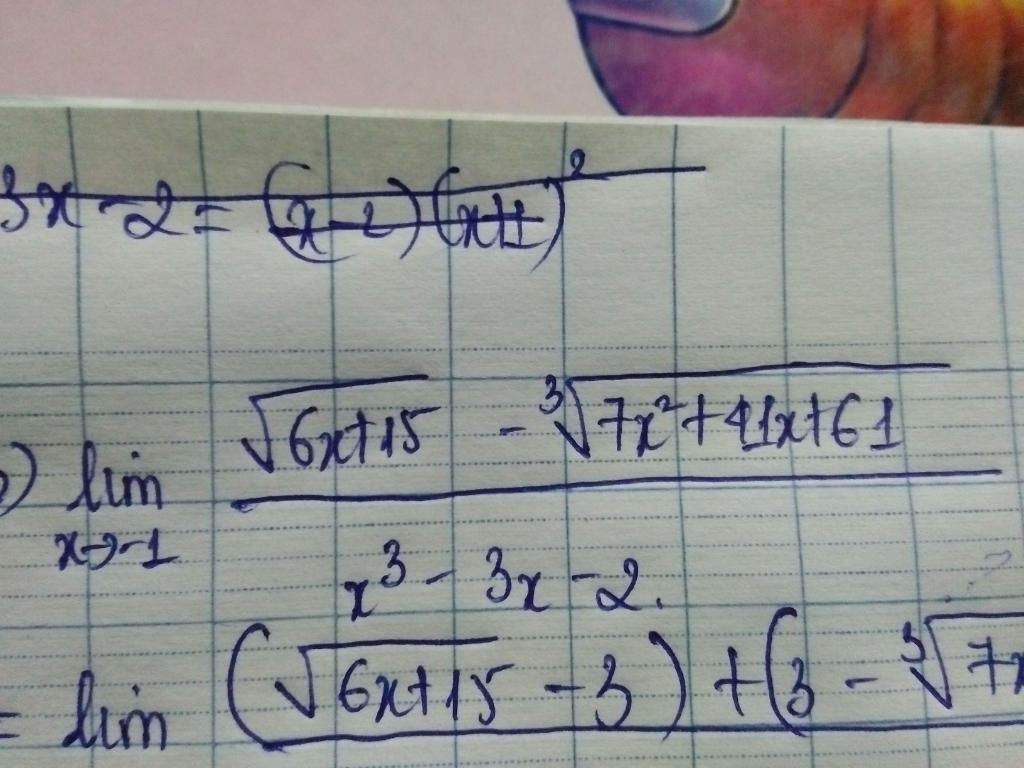 3x - 2 = (x-2)(x+1)²
) lim √(6x+15) - ∛(7x²+41x+61)
x→-1 x³ - 3x - 2.
= lim (√(6x+15) - 3) + (3 - ∛7x